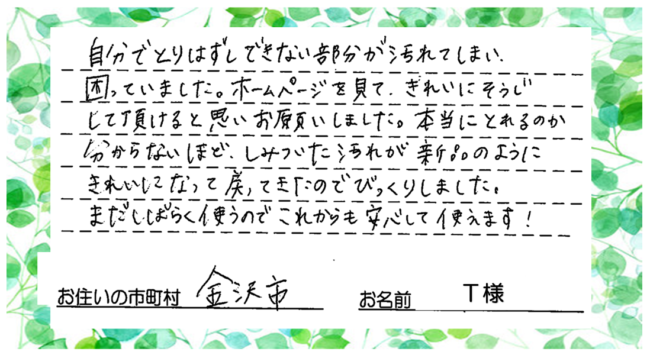 自分でとりはずしできない部分が汚れてしまい、
困っていました。ホームページを見て、きれいにそうじ
して頂けると思いお願いしました。本当にとれるのか
分からないほど、しみついた汚れが新品のように
きれいになって戻ってきたのでびっくりしました。
まだしばらく使うのでこれからも安心して使えます！
お住いの市町村 金沢市 お名前 T様